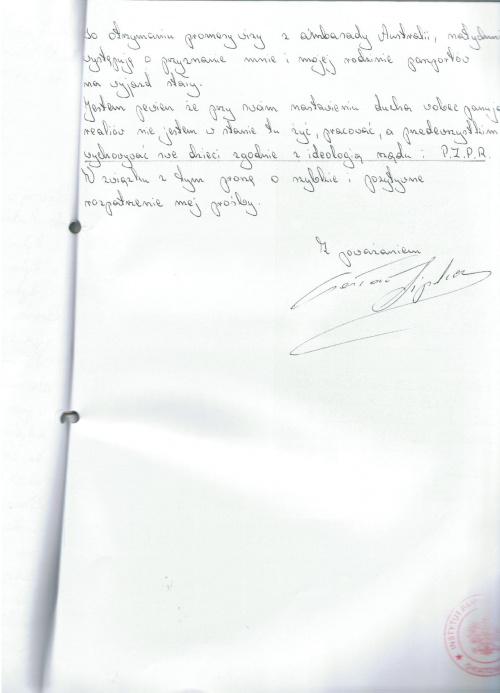 po otrzymaniu promesy wizy z ambasady Australii, natychmi
występuję o przyznanie mnie i mojej rodzinie paszportów
na wyjazd stały.
Jestem pewien że przy swoim nastawieniu ducha wobec panują
realiów nie jestem w stanie tu żyć, pracować, a przedewszystkim
wychowywać swe dzieci zgodnie z ideologią rządu i P.Z.P.R.
W związku z tym proszę o szybkie i pozytywne
rozpatrzenie mej prośby.
Z poważaniem
INSTYTUT